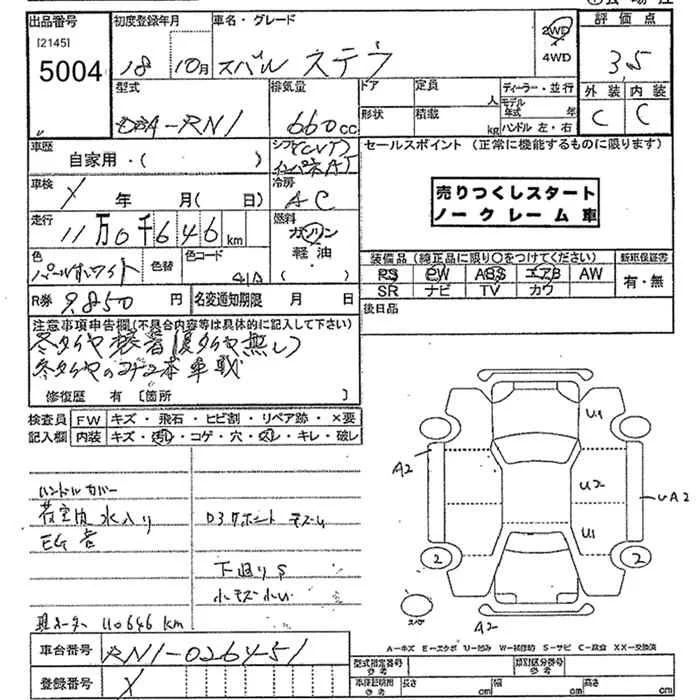 出品番号
[2145]
5004
初度登録年月
18 10月
車名・グレード
スバル ステラ
2WD
4WD
評価点
3,5
外装 内装
C C
型式
DBA-RN1
排気量
660cc
ドア
形状
定員
人
積載
kg
ディーラー・並行
モデル年式 年
ハンドル 左・右
車歴
自家用・( )
シフト(CVT)
インパネAT
セールスポイント (正常に機能するものに限ります)
売りつくしスタート
ノークレーム車
車検
年 月( 日)
冷房
AC
走行
11万0千646km
燃料
ガソリン
軽油・
( )
色
パールホワイト
色替
色コード
41A
装備品(純正品に限り〇をつけてください)
PS PW ABS エアB AW
SR ナビ TV カワ
新車保証書
有・無
R券 9,850円
名変通知期限 月 日
後日品
注意事項申告欄(不具合内容等は具体的に記入して下さい)
冬タイヤ装着(夏タイヤ無し)
冬タイヤのコナ2本車載
修復歴 有 [箇所 ]
検査員記入欄
FW キズ・飛石・ヒビ割・リペア跡・×要
内装 キズ・汚れ・コゲ・穴・凹み・キレ・破レ
ハンドルカバー
荷室内水入り
EG音
下廻りS
小キズ小凹
110646 km
U1
A2
U2
UA2
U1
2
2
スペア
A2
A=キズ E=エクボ U=凹み W=補修跡 S=サビ C=腐食 XX=交換済
車台番号
RN1-026451
登録番号
型式指定番号
参考
類別区分番号
参考
車体証明書
参考
長さ cm
幅 cm
高さ cm